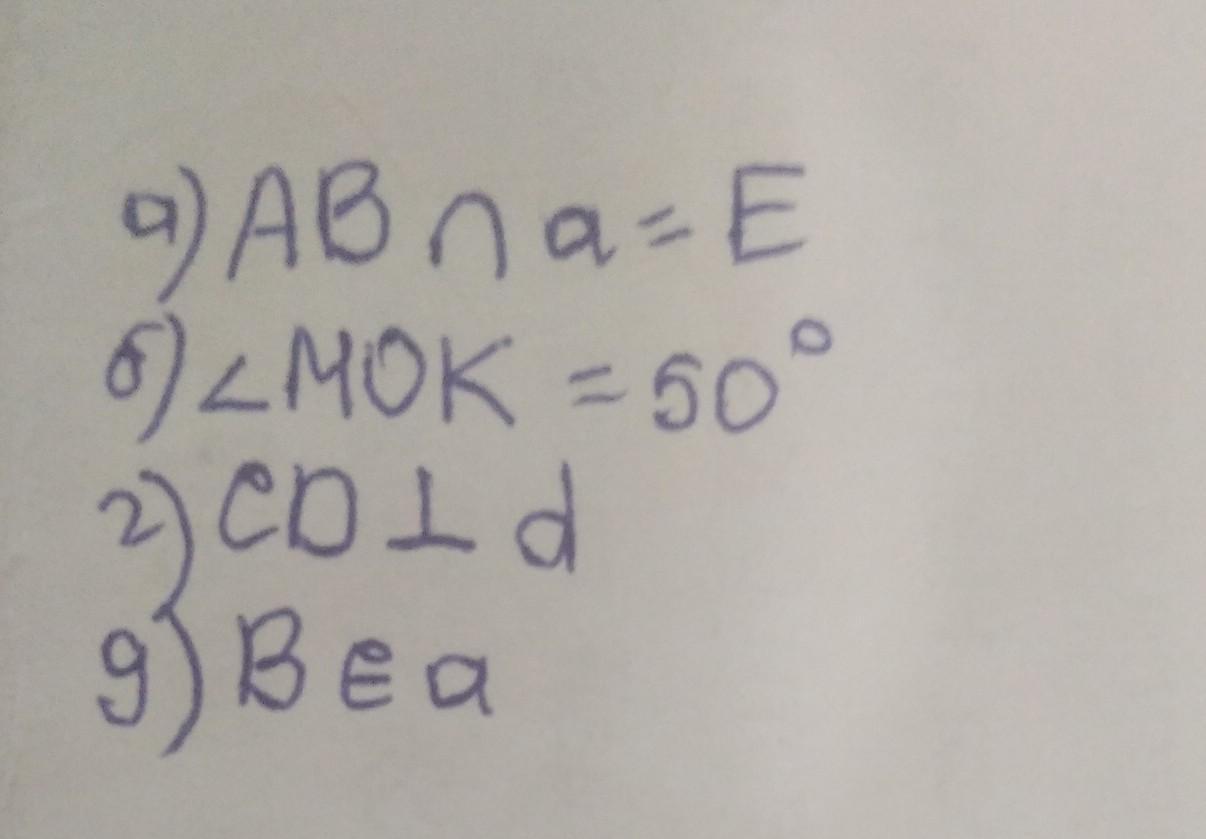 а) AB ∩ a = E
б) ∠MOK = 50°
г) CD ⊥ d
д) B ∈ a